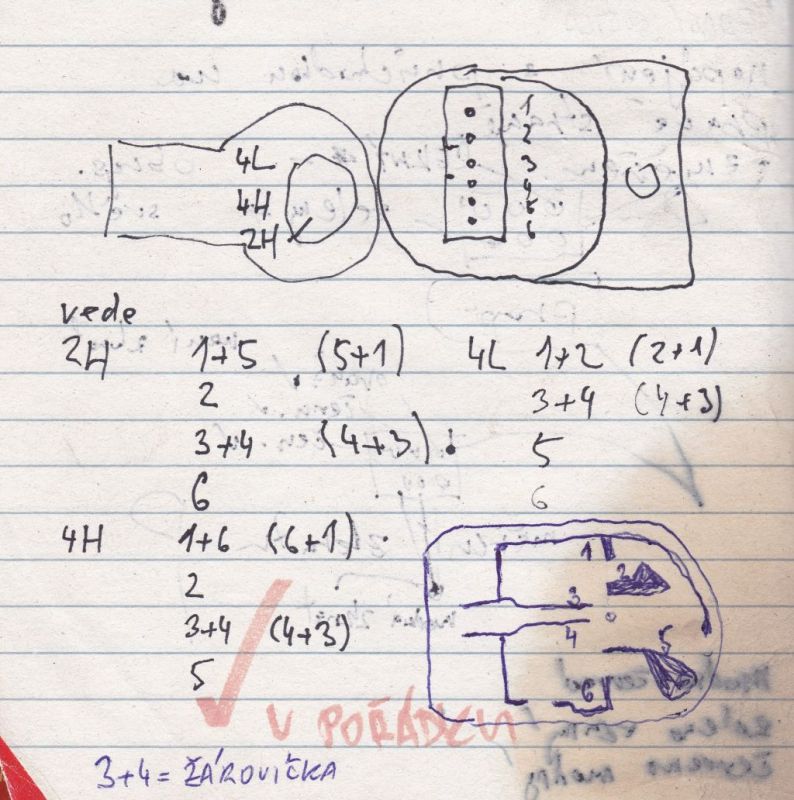 4L
4H
2H
1
2
3
4
5
6
vede
2H 1+5 (5+1) 4L 1+2 (2+1)
2 3+4 (4+3)
3+4 (4+3) 5
6 6
4H 1+6 (6+1)
2
3+4 (4+3)
5
1
2
3
4
5
6
V POŘÁDKU
3+4 = ŽÁROVIČKA